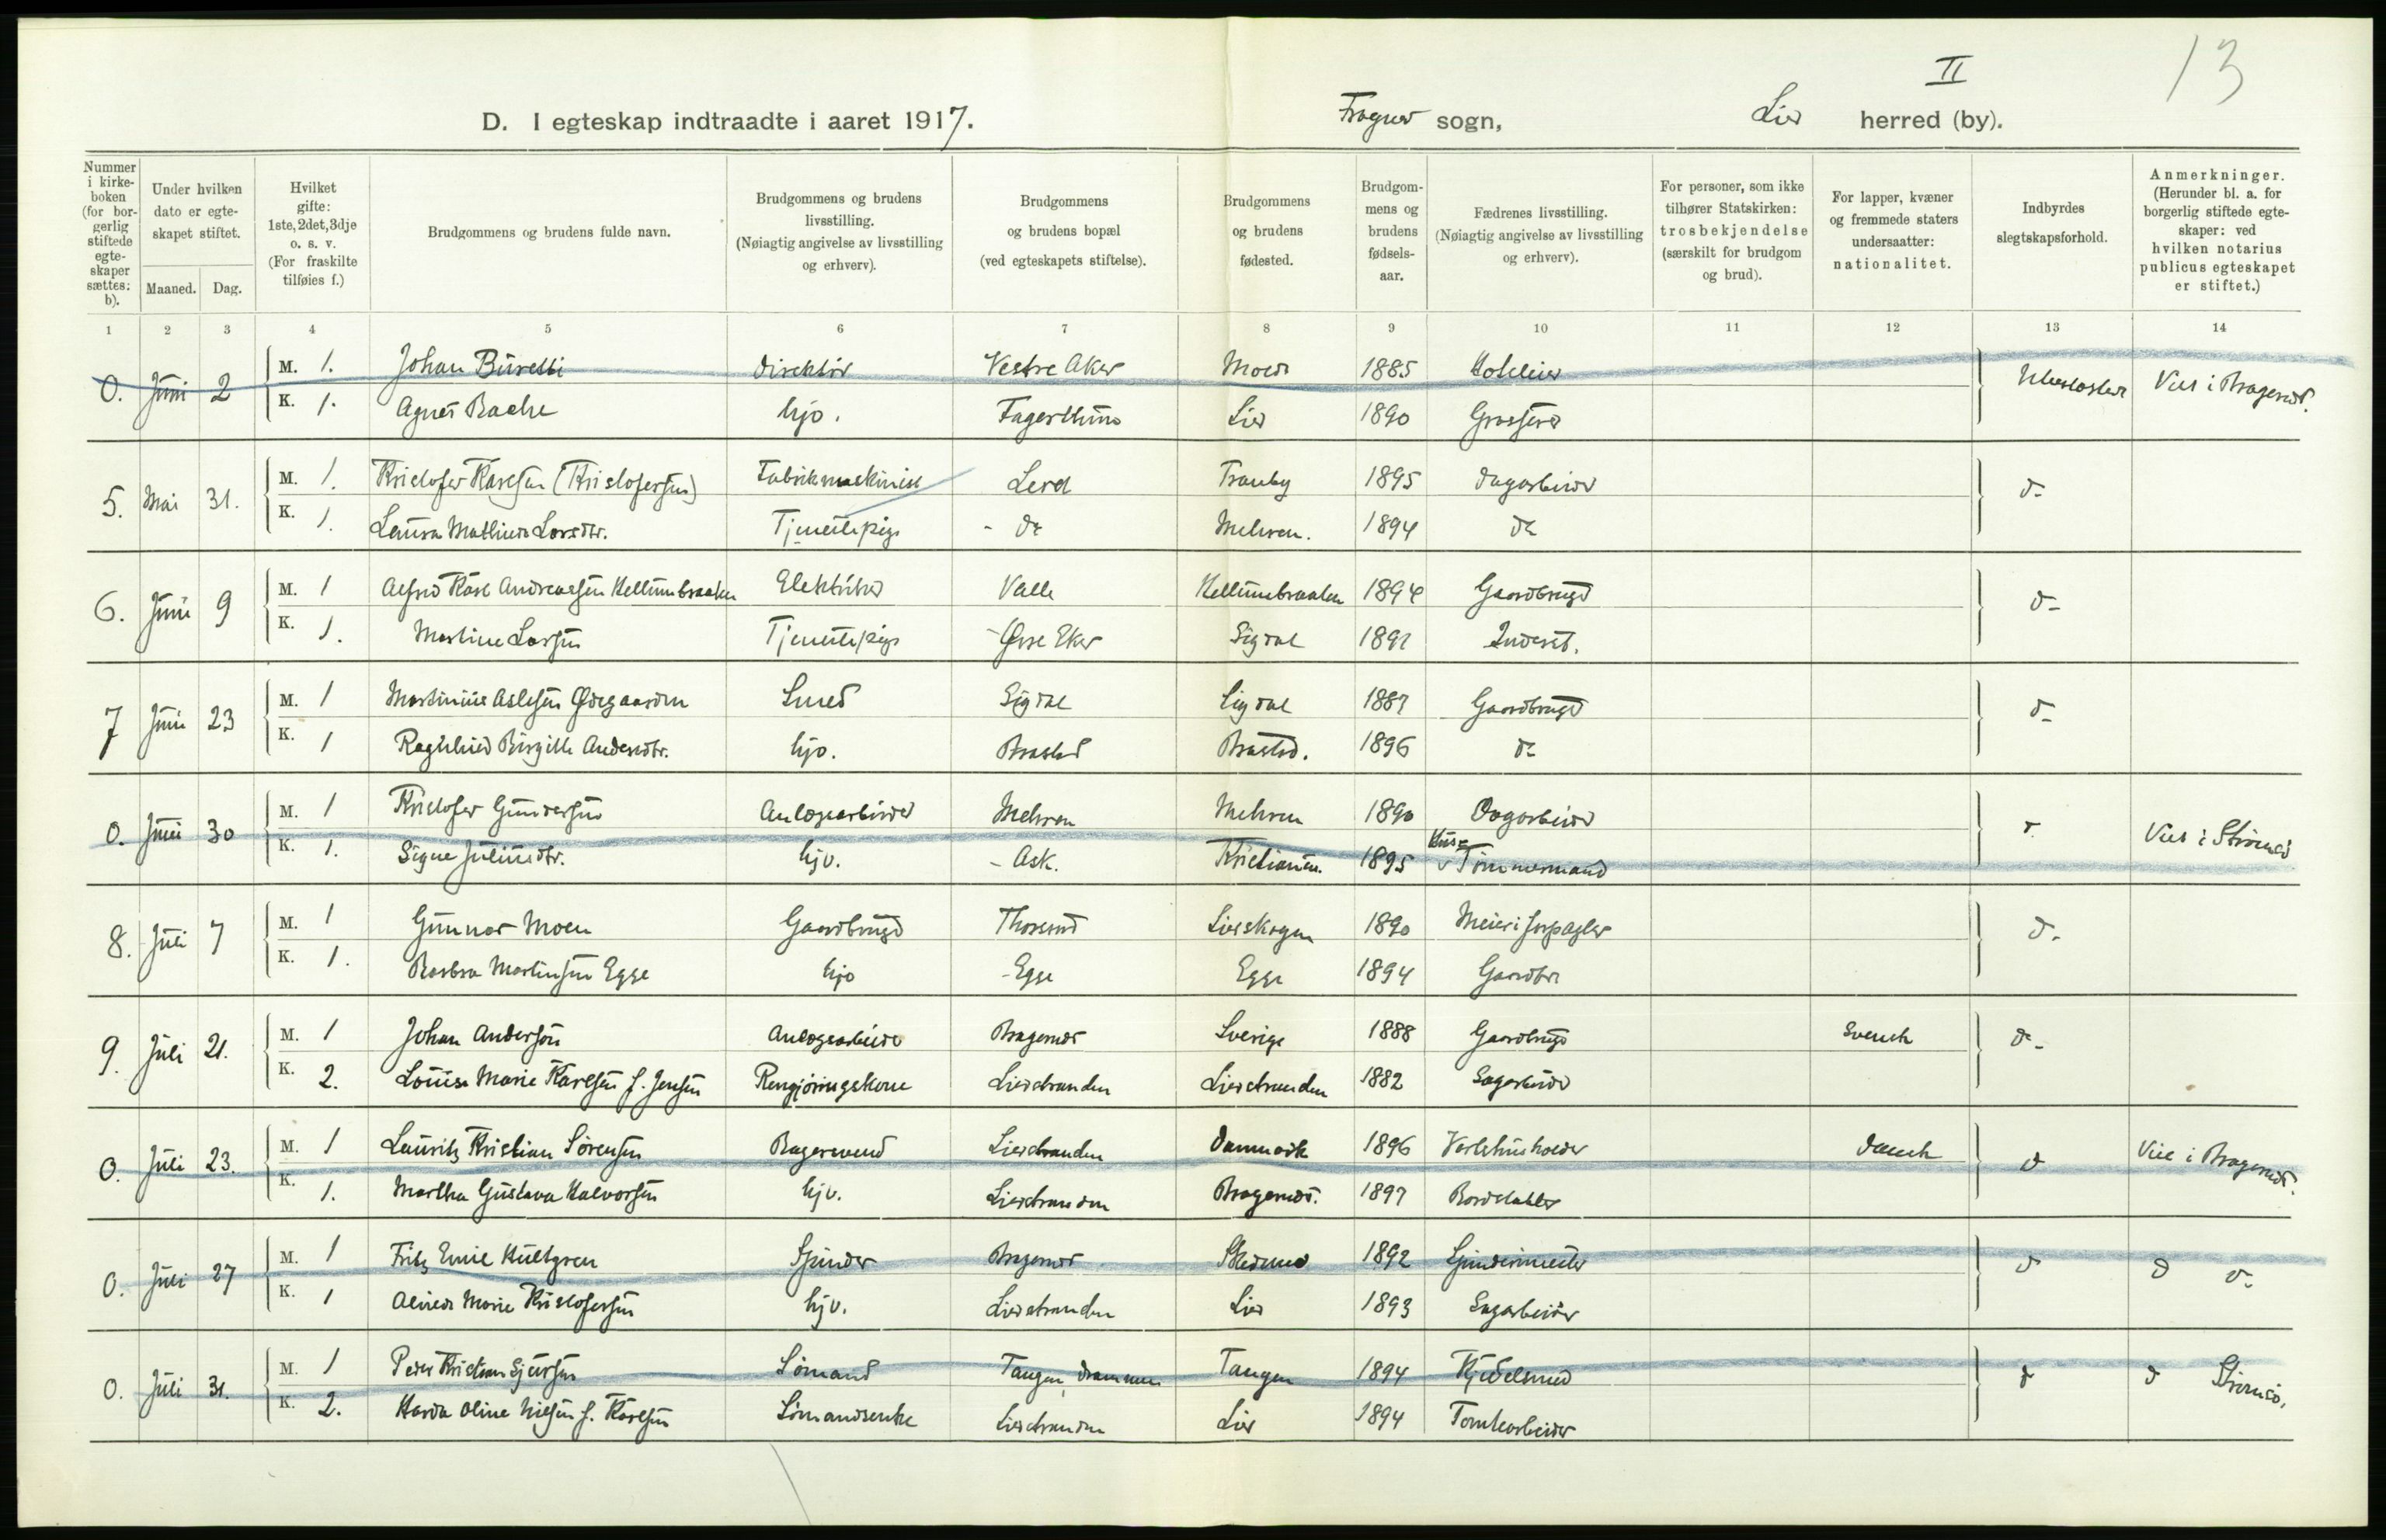 II
13
D. I egteskap indtraadte i aaret 1917. Frogner sogn, Lier herred (by).
Nummer i kirkeboken (for borgerlig stiftede egteskaper sættes: b).
Under hvilken dato er egteskapet stiftet.
Maaned. Dag.
Hvilket gifte: 1ste, 2det, 3dje o. s. v. (For fraskilte tilføies f.)
Brudgommens og brudens fulde navn.
Brudgommens og brudens livsstilling. (Nøiagtig angivelse av livsstilling og erhverv).
Brudgommens og brudens bopæl (ved egteskapets stiftelse).
Brudgommens og brudens fødested.
Brudgommens og brudens fødselsaar.
Fædrenes livsstilling. (Nøiagtig angivelse av livsstilling og erhverv).
For personer, som ikke tilhører Statskirken: trosbekjendelse (særskilt for brudgom og brud).
For lapper, kvæner og fremmede staters undersaatter: nationalitet.
Indbyrdes slegtskapsforhold.
Anmerkninger. (Herunder bl. a. for borgerlig stiftede egteskaper: ved hvilken notarius publicus egteskapet er stiftet.)
1 2 3 4 5 6 7 8 9 10 11 12 13 14
0. Juni 2 M. 1. Johan direktør Vestre Aker Moss 1885 Ubeslegtet Viet i Bragernes.
K. 1. Agnes Bache hjv. Lier 1890 Grosserer
5. Mai 31. M. 1. Kristofer Karlsen (Kristofersen) Fabrikmaskinist Tranby 1895 dagarbeider d-
K. 1. Laura Mathilde Larsdtr. Tjenestepige - do Mehren. 1894 do
6. Juni 9 M. 1 Alfred Karl Andreassen Hellumbraaten Elektriker Valle Hellumbraaten 1894 Gaardbruger d-
K. 1. Martine Larsen Tjenestepige Øvre Eker Sigdal 1891 Inderst.
7 Juni 23 M. 1 Martinius Aslesen Ødegaarden Smed Sigdal Sigdal 1887 Gaardbruger d-
K. 1 Ragnhild Birgitte Andersdtr. hjv. 1896 do
0. Juni 30 M. 1 Kristofer Gundersen Anlægsarbeider Mehren Mehren 1890 Dagarbeider d. Viet i Strømsø
K. 1. Signe Juliusdtr. hjv. - Ask. Kristiania. 1895 Hus- Tømmermand
8. Juli 7 M. 1 Gunnar Moen Gaardbruger Thorsrud Lierskogen 1890 Meieriforpagter d-
K. 1. Barbra Martinsen Egge hjv - Egge Egge 1894 Gaardbr
9. Juli 21. M. 1 Johan Anderson Anlægsarbeider Bragernes Sverige 1888 Gaardbruger Svensk d-
K. 2. Louise Marie Karlsen f. Jensen Rengjøringskone Lierstranden Lierstranden 1882 Sagarbeider
0. Juli 23. M. 1 Laurits Kristian Sørensen Bagersvend Lierstranden Danmark 1896 Vertshusholder dansk d Viet i Bragernes.
K. 1. Martha Gustava Halvorsen hjv. Lierstranden Bragernes. 1897 Bordstabler
0. Juli 27 M. 1 Fritz Emil Hultgren Gjørtler Bragernes 1892 d d d-
K. 1 Alvilde Marie Kristofersen hjv. Lierstranden Lier 1893 Sagarbeider
0. Juli 31. M. 1 Peder Kristian Sjursen Sømand Tangen, Drammen Tangen 1894 Kjedelsmed d d Strømsø.
K. 2. Harda Oline Nilsen f. Karlsen Sømandsenke Lierstranden Lier 1894 Tomtearbeider